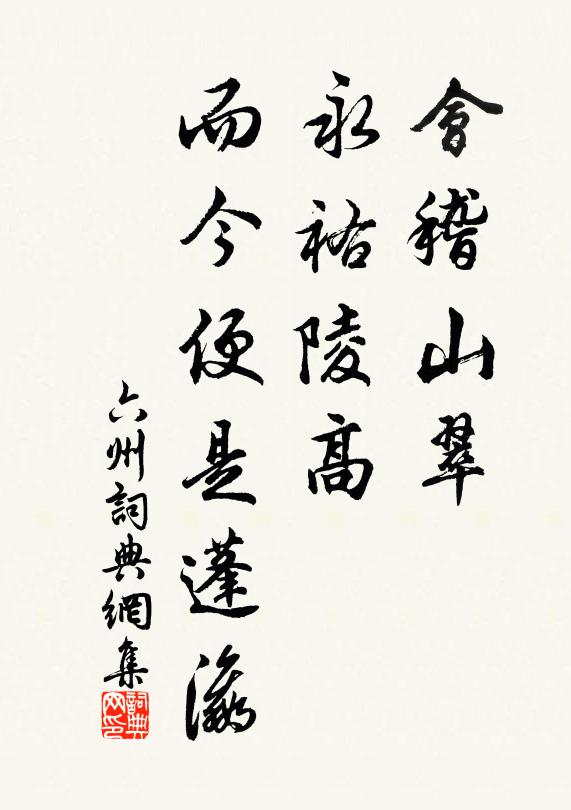 會稽山翠
永祐陵高
而今便是蓬瀛
六州詞典網集
詞典網印